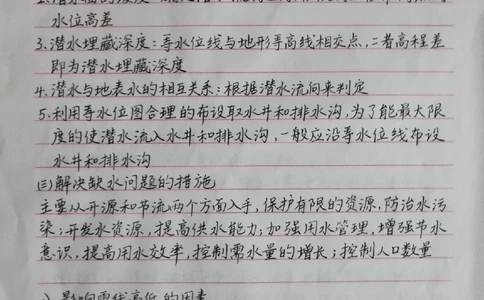 水位高差
3.潜水埋藏深度:等水位线与地形等高线相交点,二者高程差
即为潜水埋藏深度
4.潜水与地表水的相互关系:根据潜水流向来判定
5.利用等水位图合理的布设取水井和排水沟,为了能最大限
度的使潜水流入水井和排水沟,一般应沿等水位线布设
水井和排水沟
(三)解决缺水问题的措施
主要从开源和节流两个方面入手,保护有限的资源,防治水污
染;开发水资源,提高供水能力;加强用水管理,增强节水
意识,提高用水效率,控制需水量的增长;控制人口数量
影响雪线高低的因素